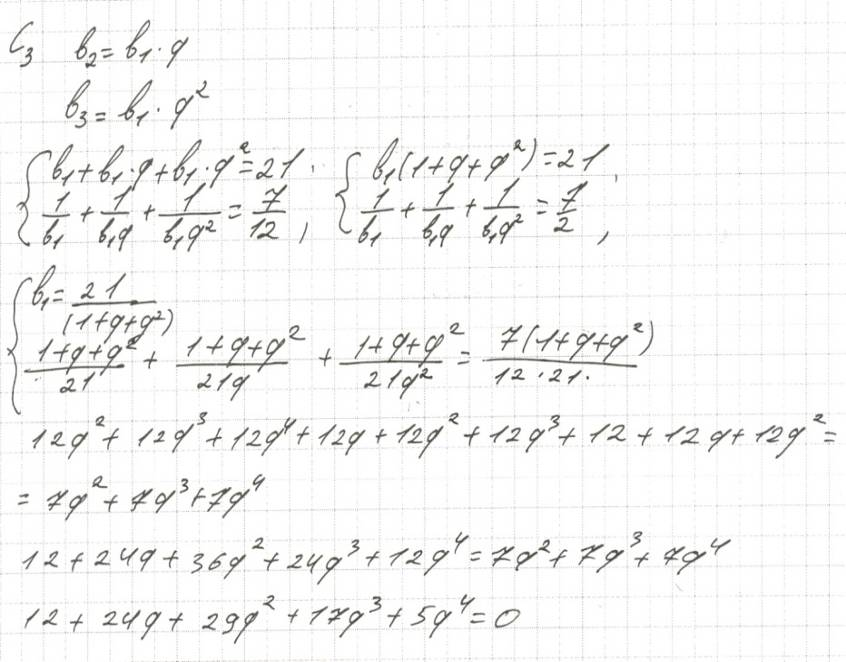 C₃ b₂ = b₁ · q
b₃ = b₁ · q²
{ b₁ + b₁·q + b₁·q² = 21 . { b₁(1+q+q²) = 21 ,
1/b₁ + 1/b₁q + 1/b₁q² = 7/12 , 1/b₁ + 1/b₁q + 1/b₁q² = 7/2 ,
{ b₁ = 21/(1+q+q²)
(1+q+q²)/21 + (1+q+q²)/21q + (1+q+q²)/21q² = 7(1+q+q²)/12·21.
12q² + 12q³ + 12q⁴ + 12q + 12q² + 12q³ + 12 + 12q + 12q² =
= 7q² + 7q³ + 7q⁴
12 + 24q + 36q² + 24q³ + 12q⁴ = 7q² + 7q³ + 7q⁴
12 + 24q + 29q² + 17q³ + 5q⁴ = 0